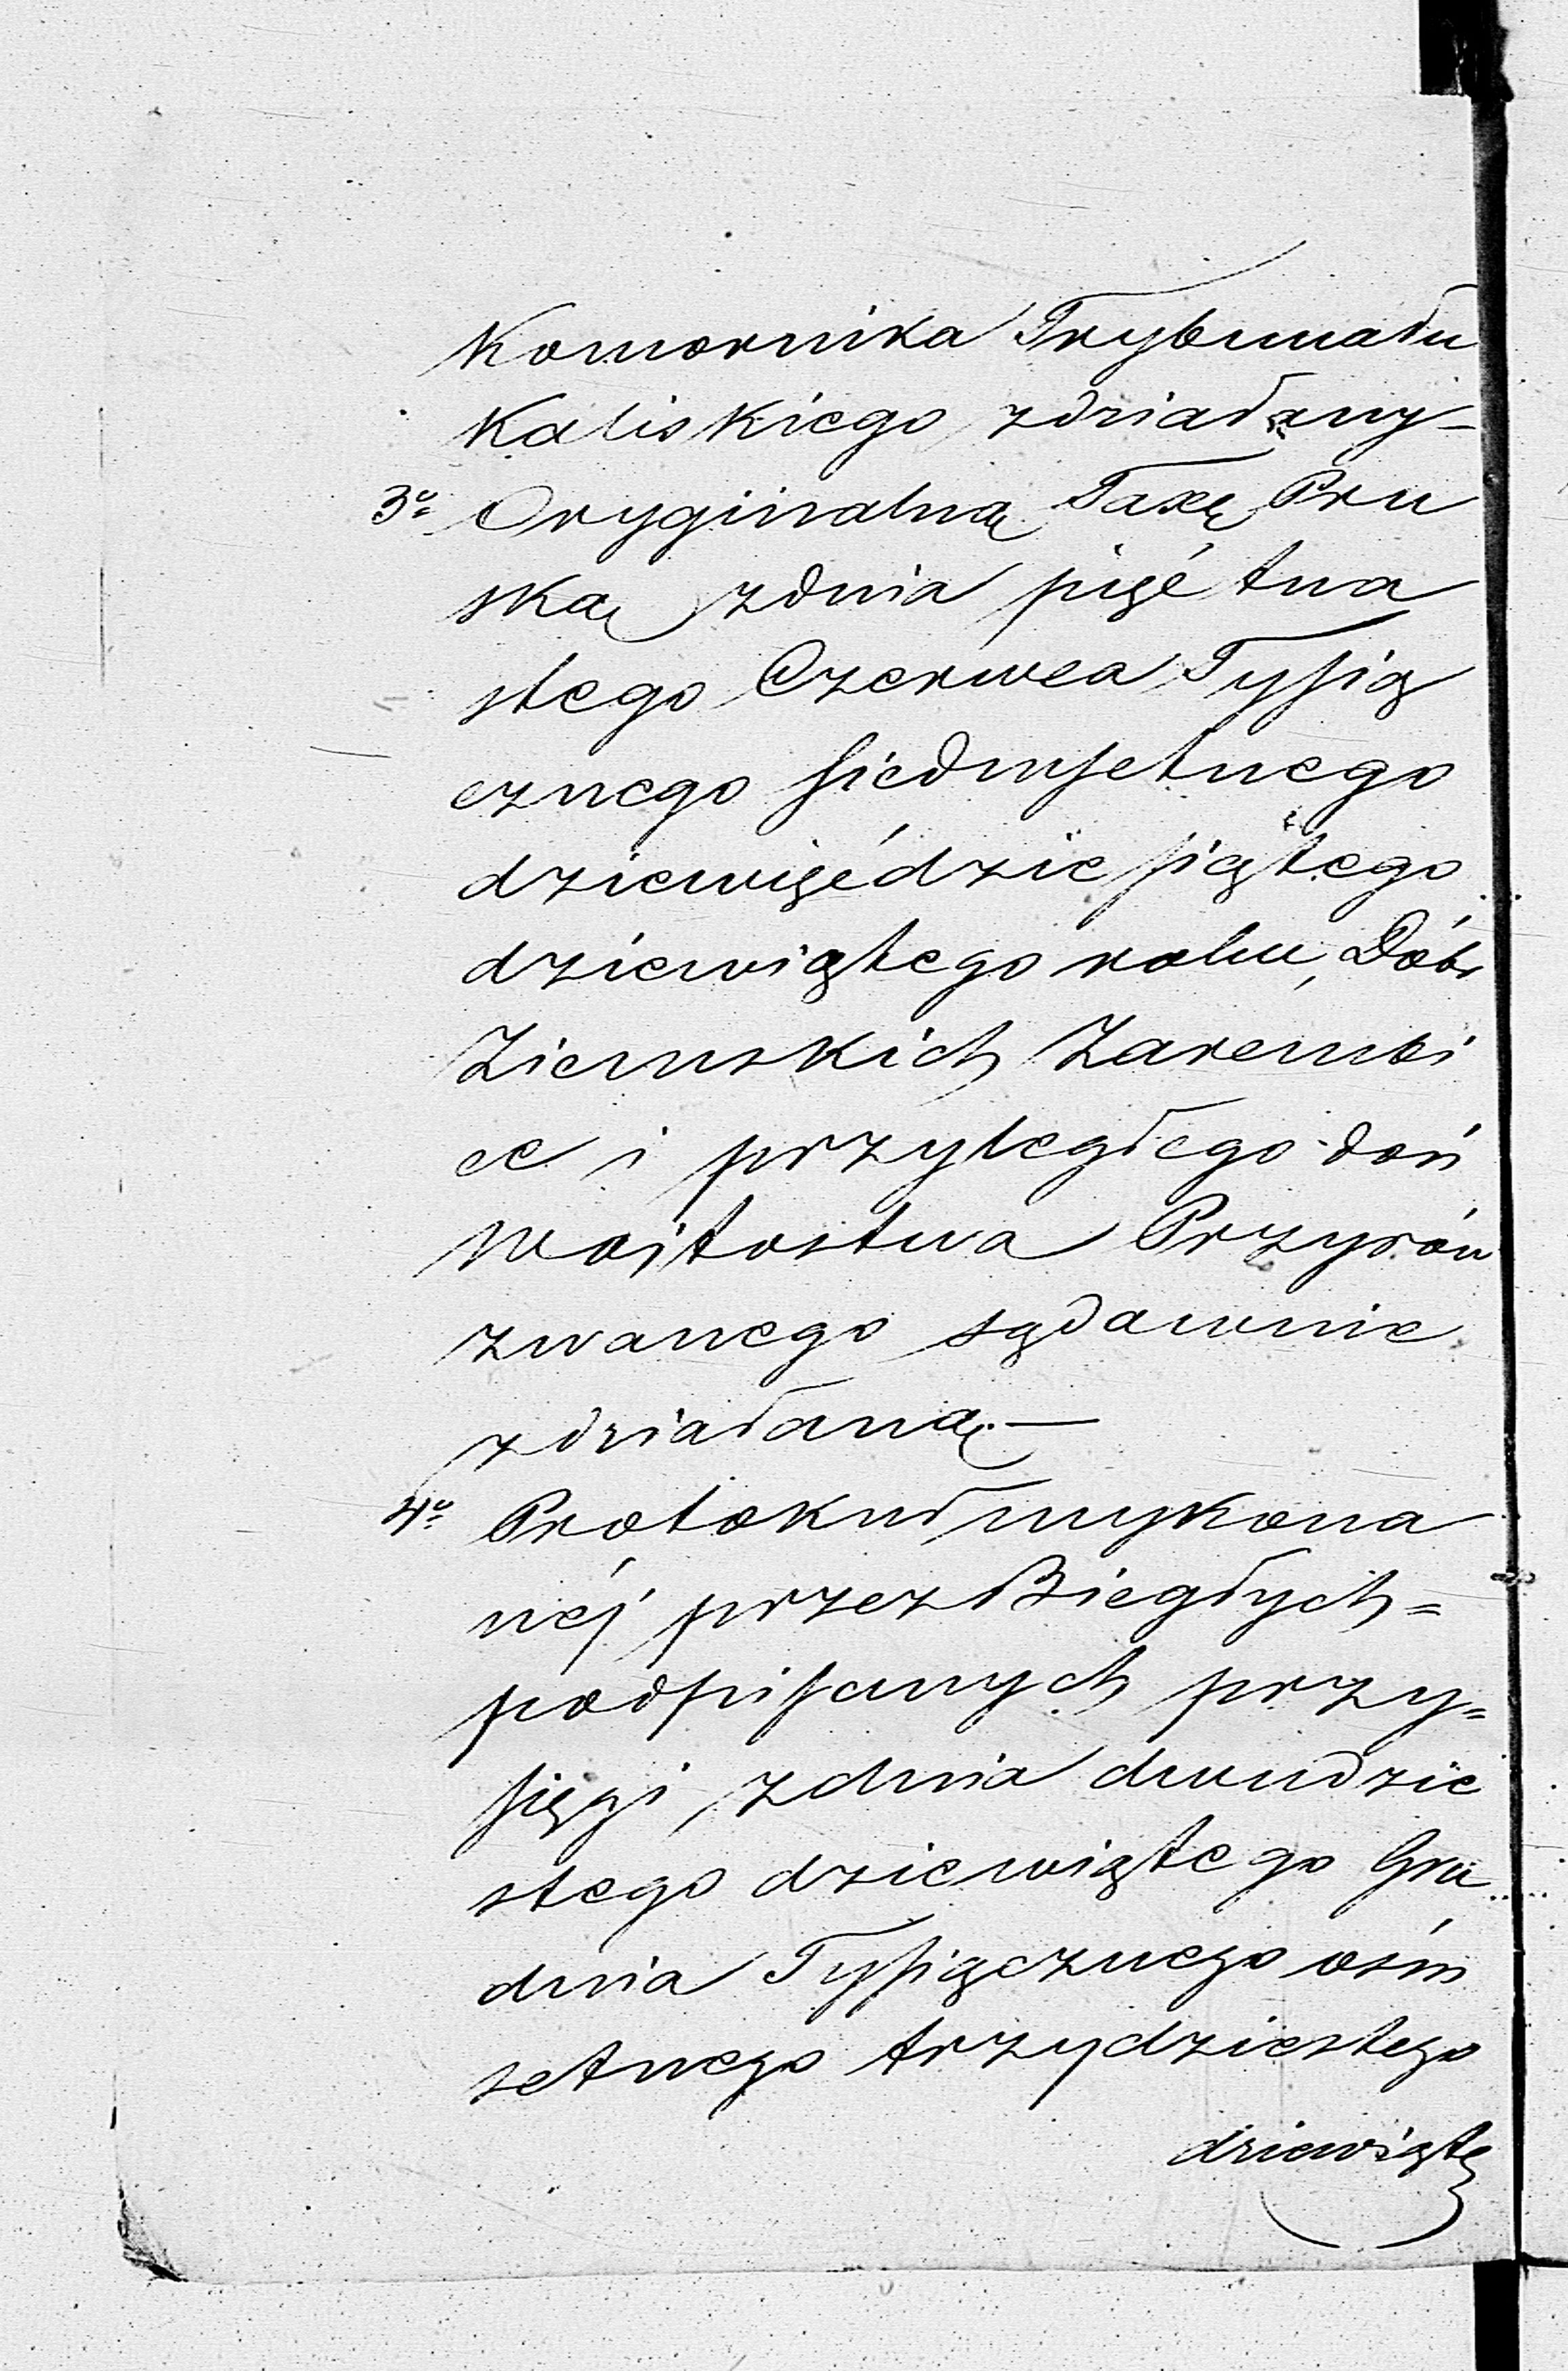 Komornika Trybunału
Kaliskiego zdziałany –
3o Oryginalną Taxę Pru
ską z dnia pięć tna
stego Czerwca Tysią
cznego siedmsetnego
dziewięćdziesiątego
dziewiątego roku, Dóbr
Ziemskich Zarembi
ce i przyległego doń
Wojtostwa Przyrów
zwanego sądawnie
zdziałaną. —
4o Protokuł wykona
néj przez Biegłych =
podpisanych przy =
sięgi, z dnia dwudzie
stego dziewiątego Gru
dnia Tysiącznego ośm
setnego trzydziestego
dziewiąte